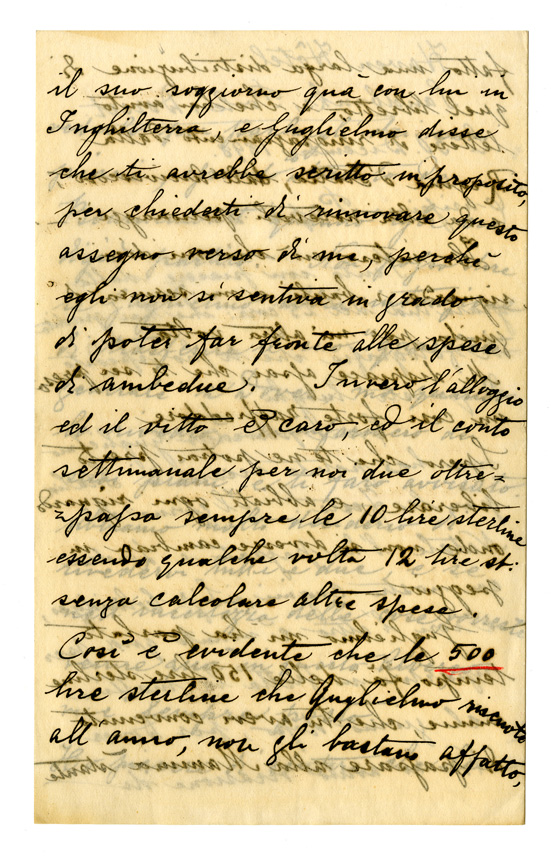 il suo soggiorno quà con lui in
Inghilterra, e Guglielmo disse
che ti avrebbe scritto in proposito,
per chiederti di rinnovare questo
assegno verso di me, perchè
egli non si sentiva in grado
di poter far fronte alle spese
di ambedue. Invero l'alloggio
ed il vitto è caro, ed il conto
settimanale per noi due oltre=
=passa sempre le 10 lire sterline
essendo qualche volta 12 lire st:
senza calcolare altre spese.
Così è evidente che le 500
lire sterline che Guglielmo riscuote
all'anno, non gli bastano affatto,